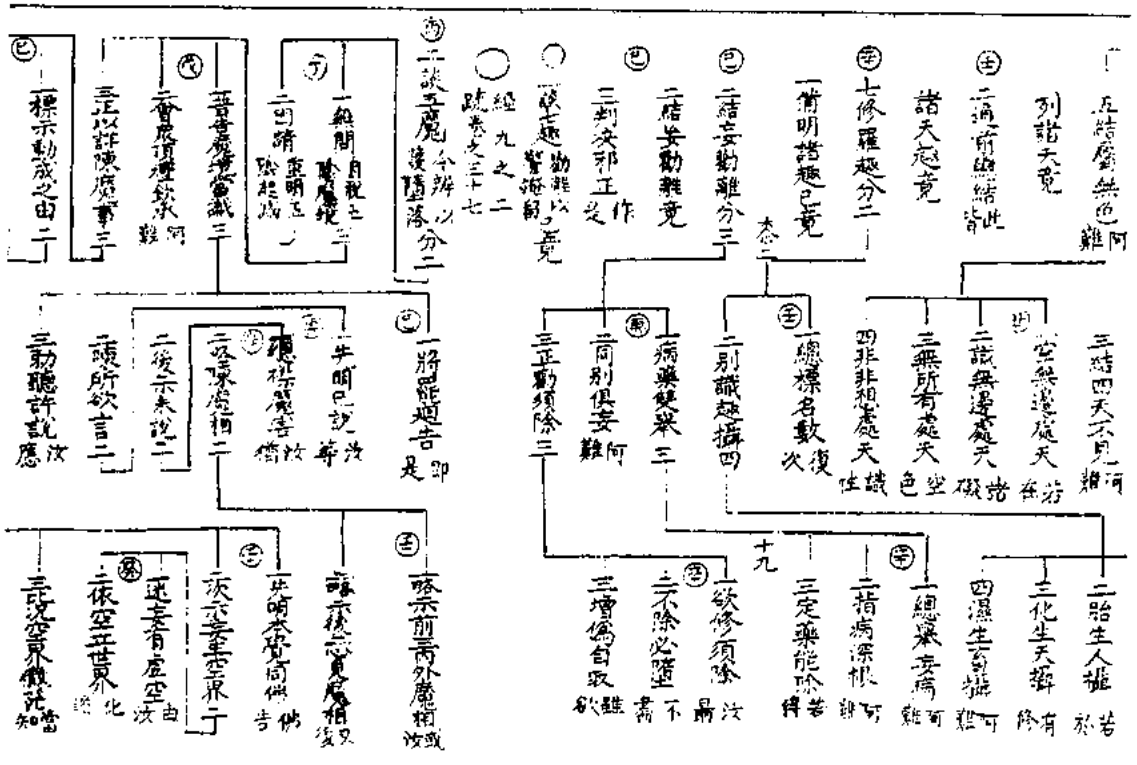 五結屬無色 阿難
列諸天竟
壬 二通前總結 此皆
諸天趣竟
辛 七修羅趣分二
一備明諸趣已竟
己 二結妄勸離分三
二結妄勸離竟
己 三判決邪正 作是
談七趣勸離以警淹留已竟
經九之二
疏卷之三十七
丙 二談五魔 令辨以護墮落 分二
丁 一無問自說五陰魔境三
二因請重明五陰起滅
戊 一普告魔境當識三
二會眾頂禮欽承 阿難
三正以詳陳魔事三
己 一標示動成之由二
三結四天不見 阿難
一空無邊處天 若在
二識無邊處天 諸礙
三無所有處天 空色
四非非想處天 識性
壬 一總標名數 復次
二別識趣攝四
庚 一病藥雙舉三
二同別俱妄 阿難
三正勸須除三
己 一將罷迴告 即是
一先簡已說 汝等
一總標魔害 汝猶
二略陳處相二
二後示未說二
二陳所欲言二
三勅聽許說 汝應
二胎生人攝 若於
三化生天攝 有修
四濕生畜攝 阿難
辛 一總舉妄病 阿難
二指病深根 阿難
三定藥能除 若得
十九
辛 一欲修須除 汝最
二不除必墮 不盡
三增偽自取 雖欲
壬 一略示前三內外魔相 或汝
二略示後二心見魔相 又復
一先明本覺同佛 佛告
二次示妄生空界二
癸 一迷妄有虛空 由汝
二依空立世界 化
三比況空界微茫 當知